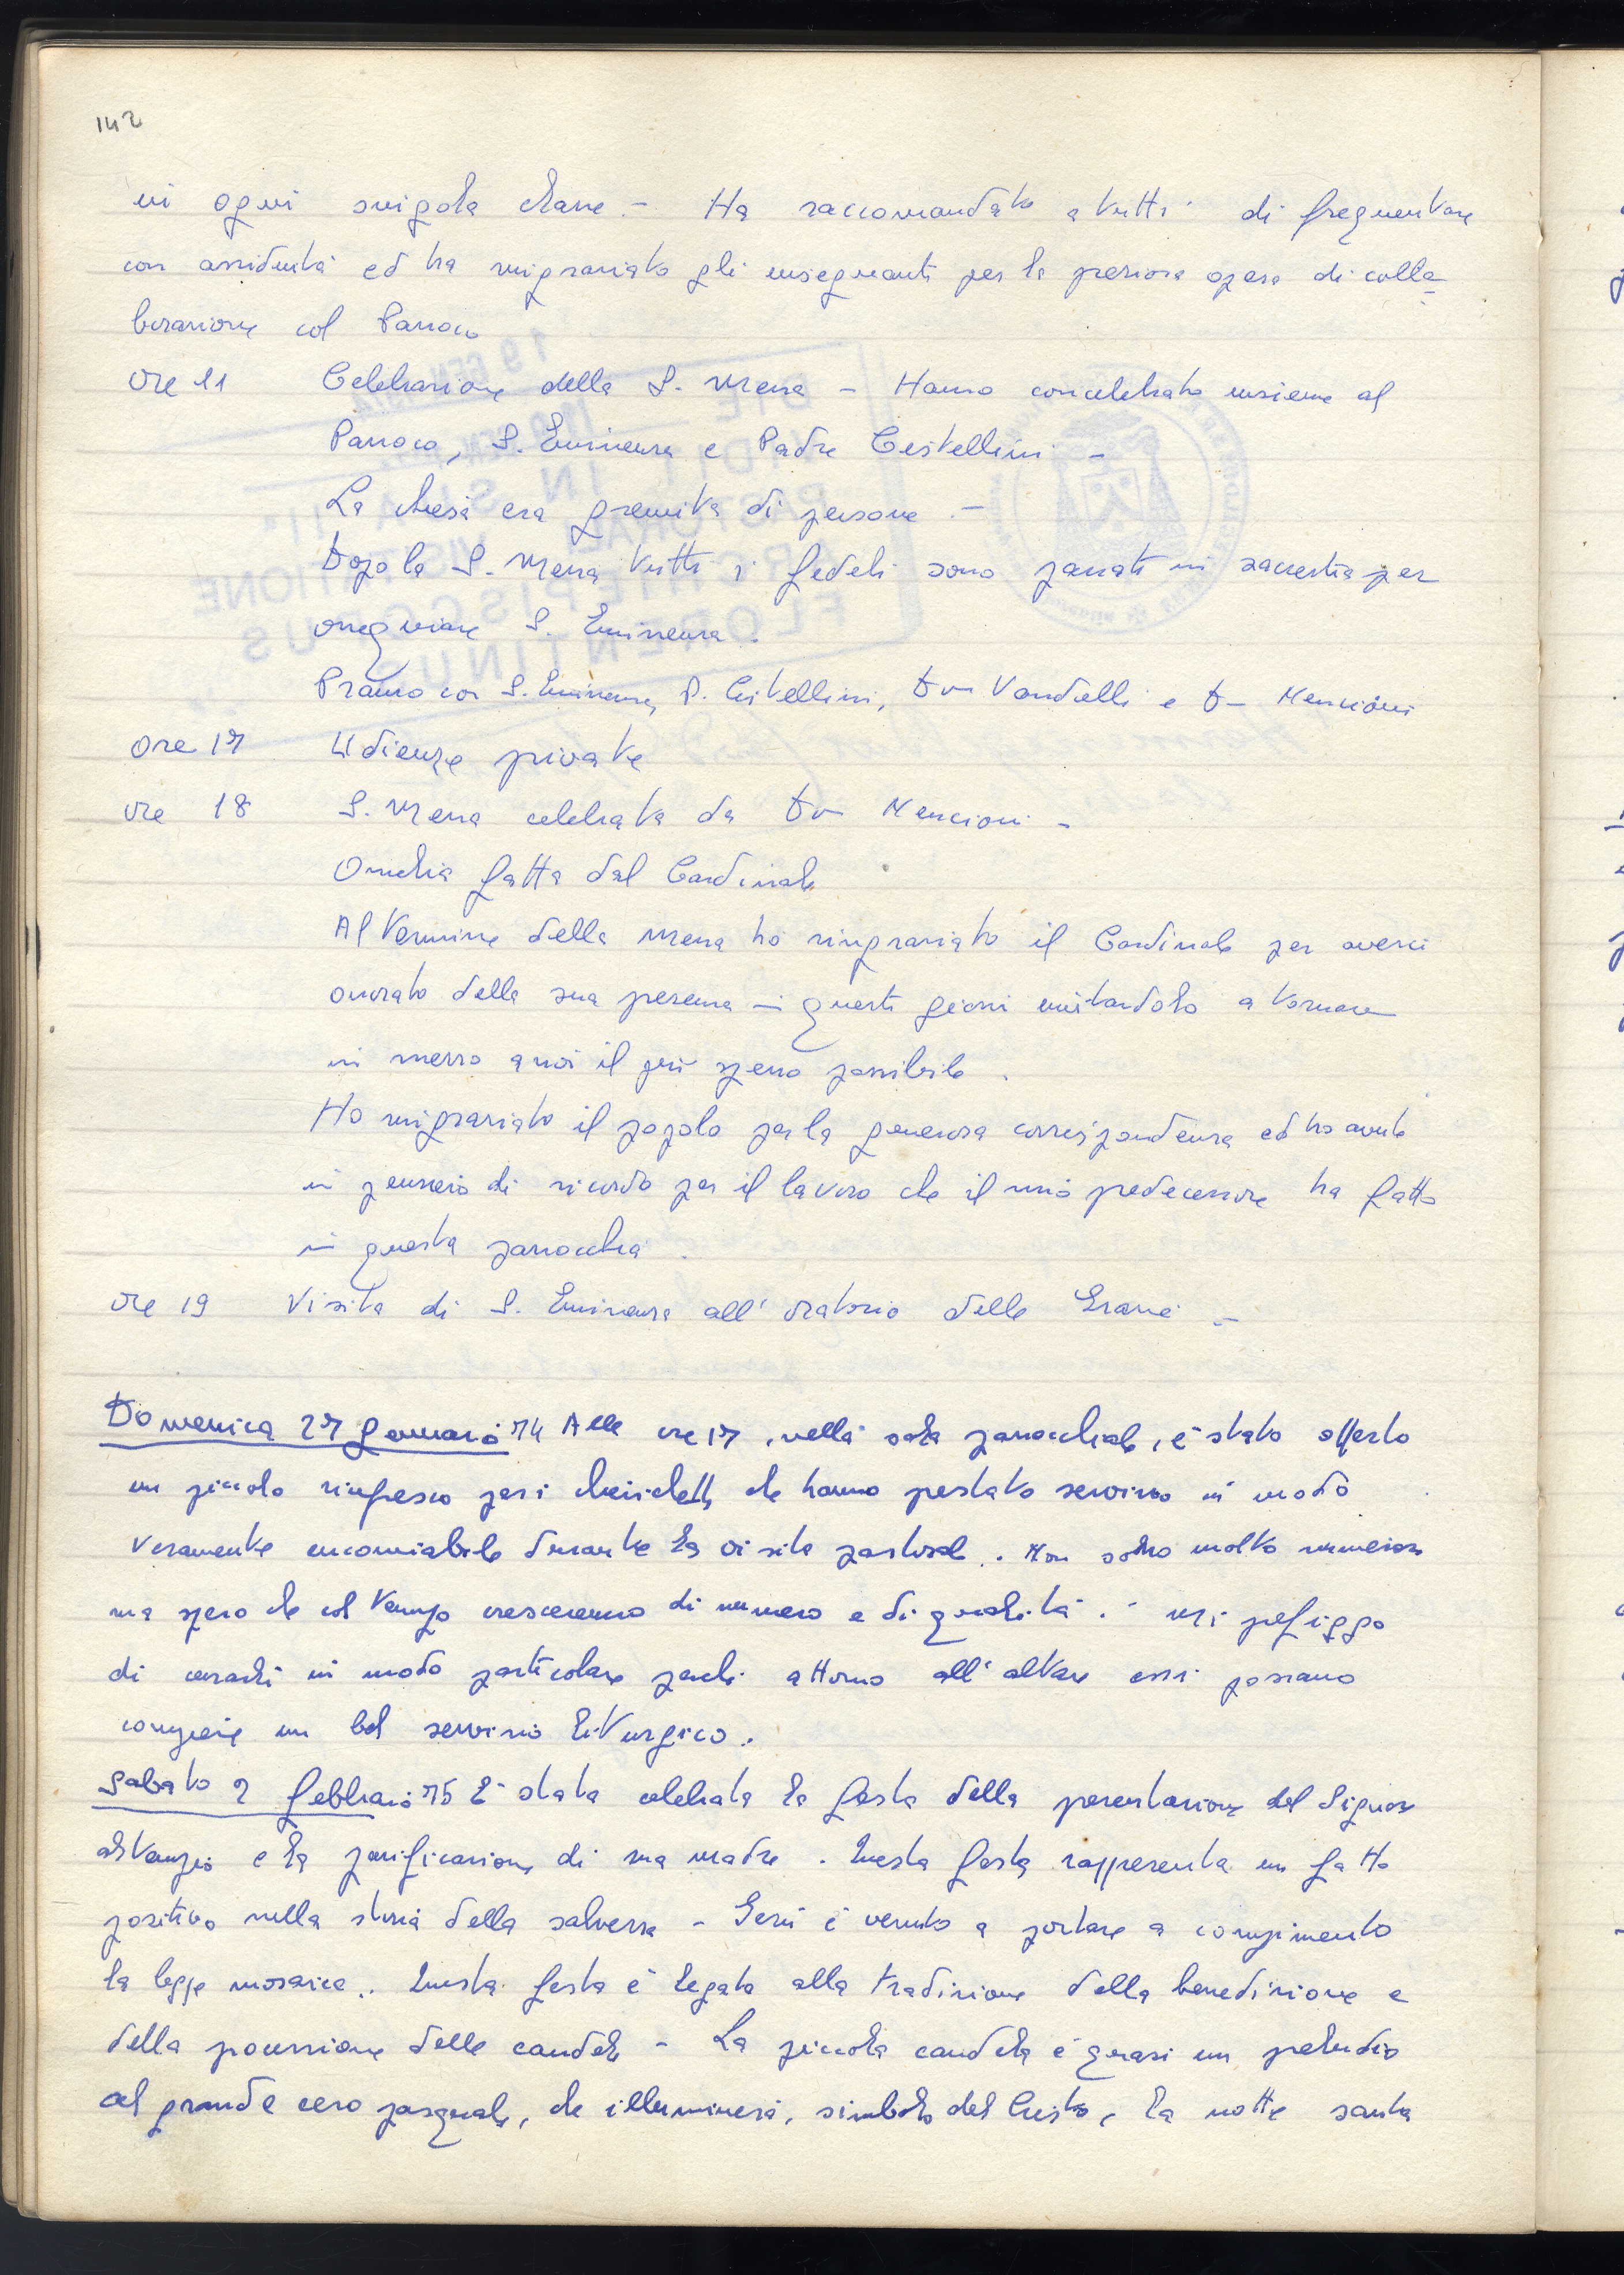 142
in ogni singola classe. - Ha raccomandato a tutti di frequentare
con assiduità ed ha ringraziato gli insegnanti per la preziosa opera di colla=
borazione col Parroco
ore 11 Celebrazione della S. Messa - Hanno concelebrato insieme al
Parroco, S. Eminenza e Padre Cistellini -
La chiesa era gremita di persone. -
Dopo la S. Messa tutti i fedeli sono passati in sacrestia per
ossequiare S. Eminenza.
Pranzo con S. Eminenza, P. Cistellini, Don Vandelli e Don Mencioni
ore 17 Udienze private
ore 18 S. Messa celebrata da Don Mencioni -
Omelia fatta dal Cardinale
Al termine della messa ho ringraziato il Cardinale per averci
onorato della sua presenza in questi giorni invitandolo a tornare
in mezzo a noi il più spesso possibile.
Ho ringraziato il popolo per la generosa corrispondenza ed ho avuto
un pensiero di ricordo per il lavoro che il mio predecessore ha fatto
in questa parrocchia.
ore 19 Visita di S. Eminenza all'oratorio delle Grazie -
Domenica 27 gennaio 74 Alle ore 17, nella sala parrocchiale, è stato offerto
un piccolo rinfresco per i chierichetti che hanno prestato servizio in modo
veramente encomiabile durante la visita pastorale. Non sono molto numerosi
ma spero che col tempo cresceranno di numero e di qualità. Mi prefiggo
di curarli in modo particolare perché attorno all'altare essi possano
compiere un bel servizio liturgico.
Sabato 2 febbraio 75 È stata celebrata la festa della presentazione del Signore
al tempio e la purificazione di sua madre. Questa festa rappresenta un fatto
positivo nella storia della salvezza - Gesù è venuto a portare a compimento
la legge mosaica.. Questa festa è legata alla tradizione della benedizione e
della processione delle candele - La piccola candela è quasi un preludio
al grande cero pasquale, che illuminerà, simbolo del Cristo, la notte santa